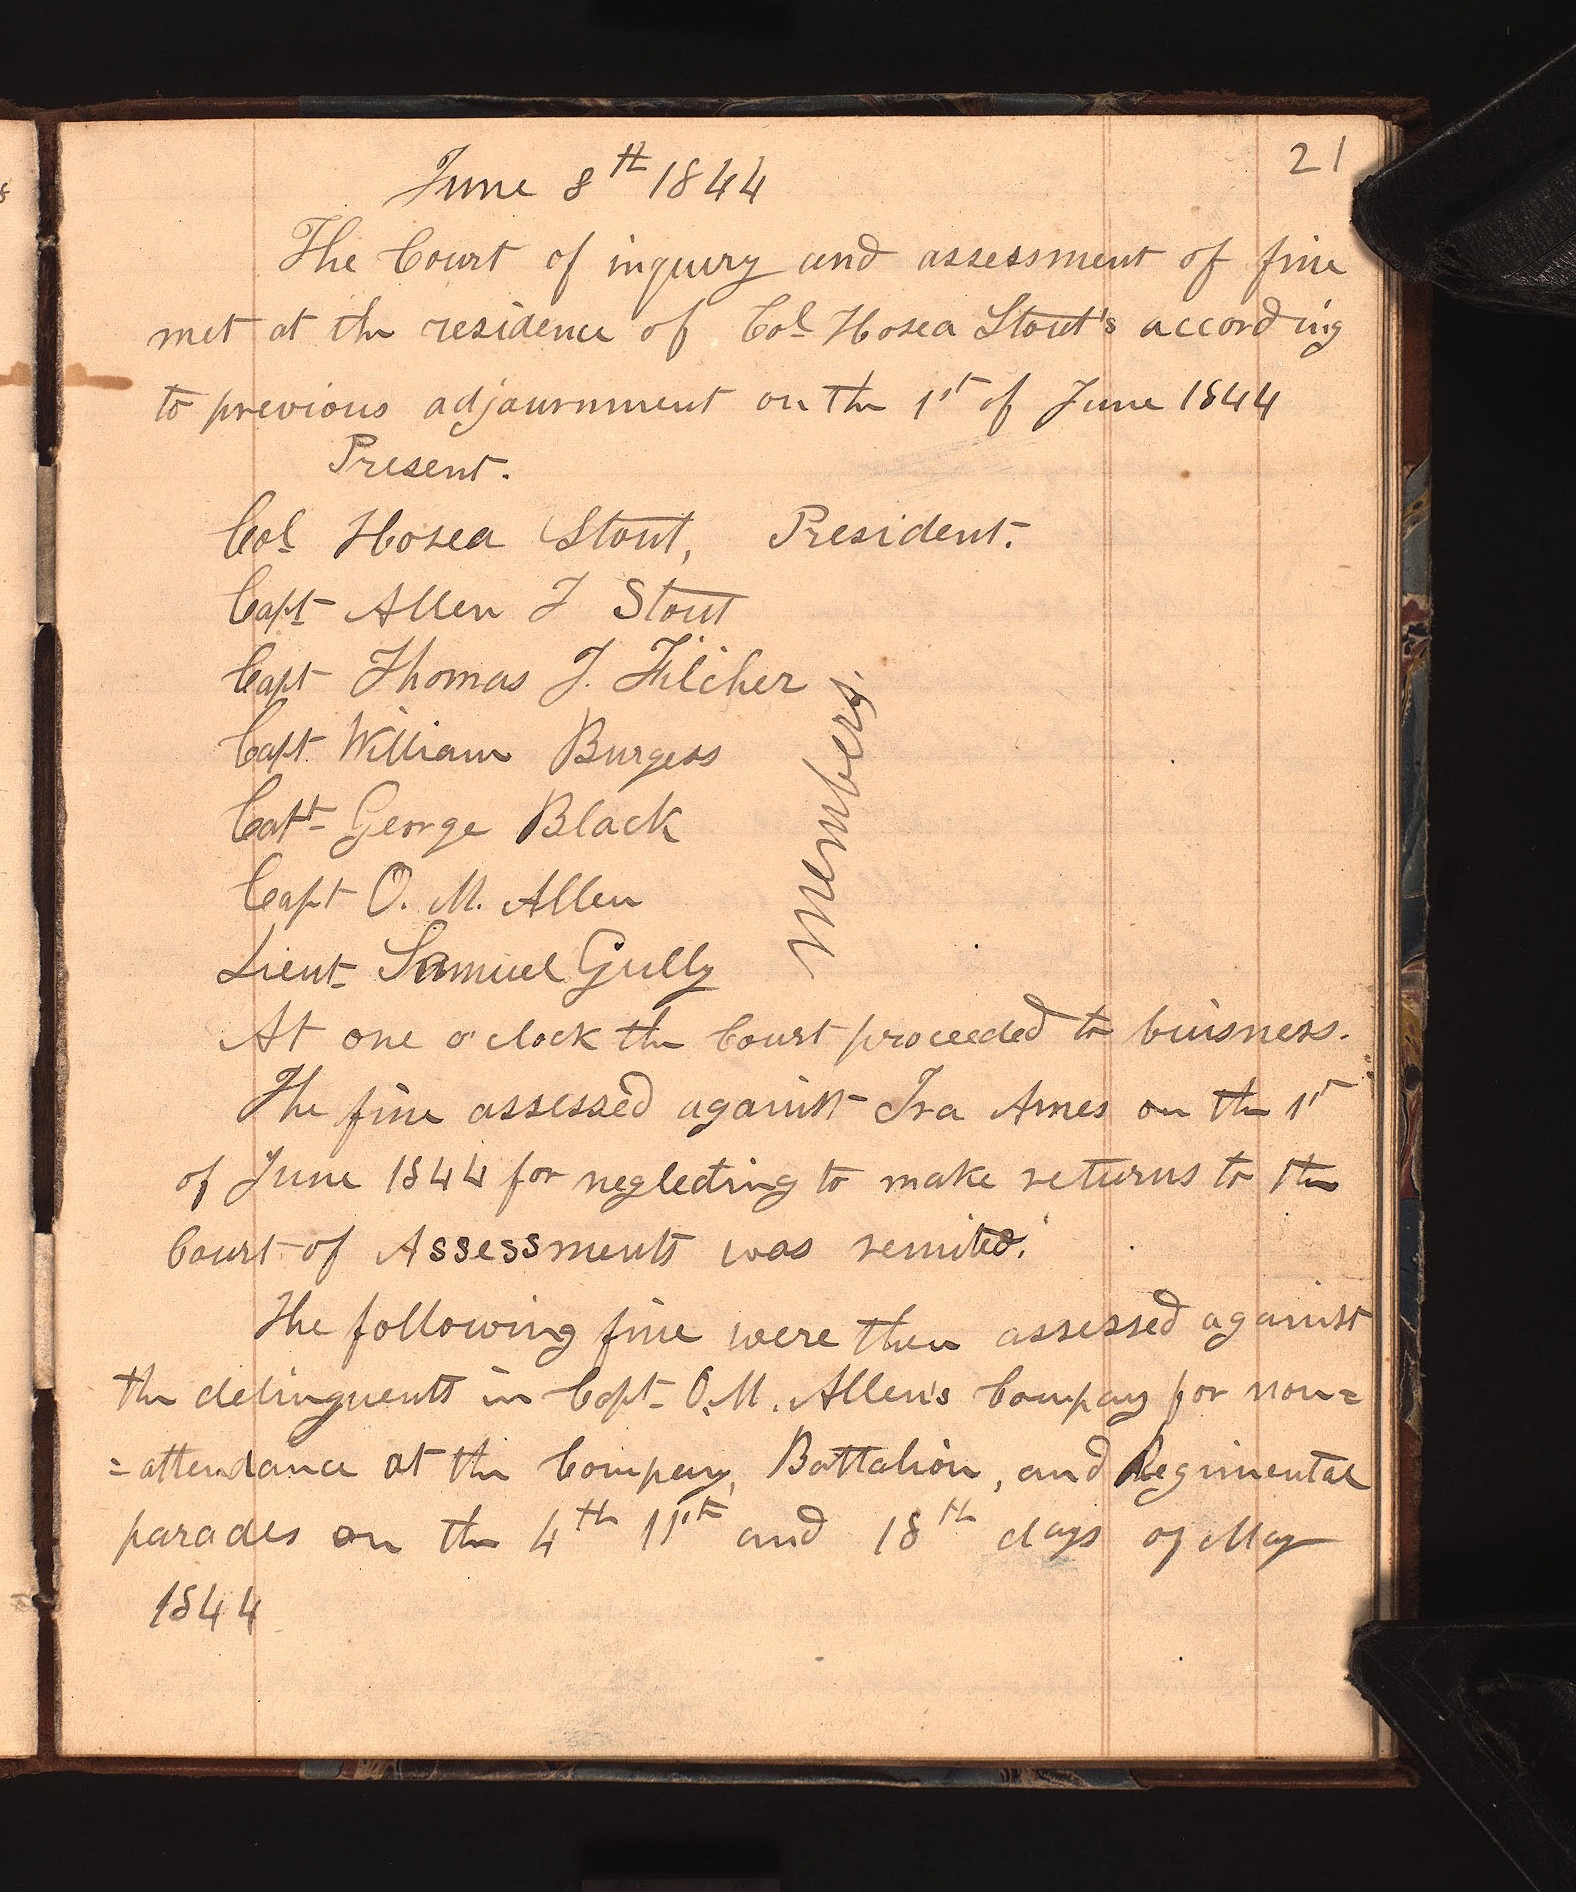 21
June 8th 1844
The Court of inquiry and assessment of fine
met at the residence of Col Hosea Stout's according
to previous adjournment on the 1st of June 1844
Present.
Col Hosea Stout, President.
Capt Allen J Stout
Capt Thomas J. Filcher
Capt William Burgess
Capt George Black
Capt O. M. Allen
Lieut Samuel Gully
Members.
At one o'clock the Court proceeded to buisness.
The fine assessed against Ira Ames on the 1st
of June 1844 for neglecting to make returns to the
Court of Assessments was remited.
The following fine were then assessed against
the delinquents in Capt O.M. Allen's Company for non=
=attendance at the Company, Battalion, and Regimental
parades on the 4th 11th and 18th days of May
1844